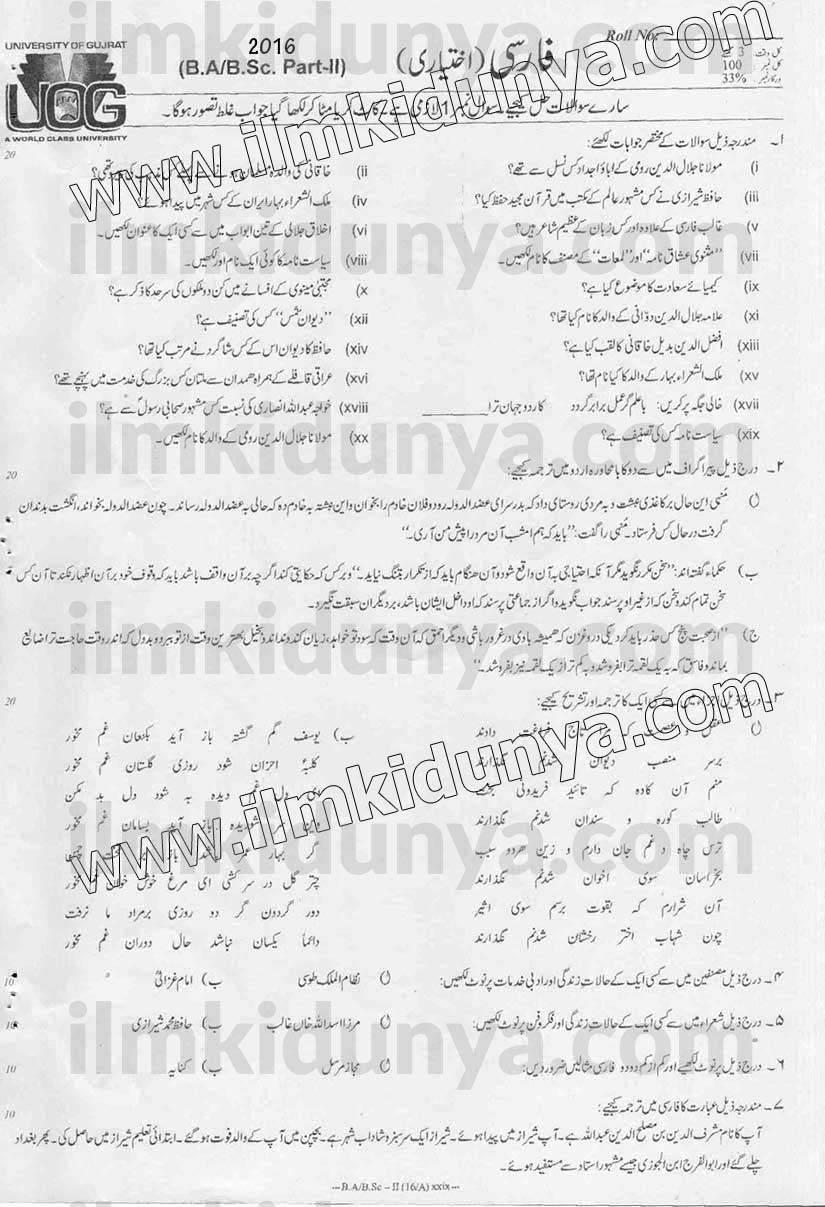 UNIVERSITY OF GUJRAT
UOG
A WORLD CLASS UNIVERSITY
2016
(B.A/B.Sc. Part-II)
فارسی (اختیاری)
Roll No:
کل وقت 3 گھنٹے
کل نمبر 100
درکار نمبر 33%
سارے سوالات حل کیجیے۔ سوال نمبر 1 لازمی ہے۔ کاٹ کر یا مٹا کر لکھا گیا جواب غلط تصور ہوگا۔
۱۔ مندرجہ ذیل سوالات کے مختصر جوابات لکھئے: 20
i) مولانا جلال الدین رومی کے اباؤ اجداد کس نسل سے تھے؟
ii) خاقانی کی والدہ مسلمان ہونے سے
iii) حافظ شیرازی نے کس مشہور عالم کے مکتب میں قرآن مجید حفظ کیا؟
iv) ملک الشعراء بہار ایران کے کس شہر میں پیدا ہوئے؟
v) غالب فارسی کے علاوہ اور کس زبان کے عظیم شاعر ہیں؟
vi) اخلاق جلالی کے تین ابواب میں سے کسی ایک کا عنوان لکھیں۔
vii) "مثنوی عشاق نامہ" اور "لمعات" کے مصنف کا نام لکھیں۔
viii) سیاست نامہ کا کوئی ایک نام اور لکھیں۔
ix) کیمیائے سعادت کا موضوع کیا ہے؟
x) مجتبیٰ مینوی کے افسانے میں کن دو ملکوں کی سرحد کا ذکر ہے؟
xi) علامہ جلال الدین دوّانی کے والد کا نام کیا تھا؟
xii) "دیوان شمس" کس کی تصنیف ہے؟
xiii) افضل الدین بدیل خاقانی کا لقب کیا ہے؟
xiv) حافظ کا دیوان اس کے کس شاگرد نے مرتب کیا تھا؟
xv) ملک الشعراء بہار کے والد کا کیا نام تھا؟
xvi) عراقی قافلے کے ہمراہ ھمدان سے ملتان کس بزرگ کی خدمت میں پہنچے تھے؟
xvii) خالی جگہ پر کریں: باعلم گر عمل برابر گردد کار دو جہان ترا ________
xviii) خواجہ عبداللہ انصاری کی نسبت کس مشہور صحابی رسولؐ سے ہے؟
xix) سیاست نامہ کس کی تصنیف ہے؟
xx) مولانا جلال الدین رومی کے والد کا نام لکھیں۔
۲۔ درج ذیل پیراگراف میں سے دو کا بامحاورہ اردو میں ترجمہ کیجیے: 20
ا) مُنھی این حال بر کاغذی نبشت و بہ مردی روستای داد کہ بدر سرای عضد الدولہ رود و فلان خادم را بخوان و این نبشتہ بہ خادم دہ کہ حالی بہ عضد الدولہ رساند۔ چون عضد الدولہ بخواند، انگشت بدندان
گرفت در حال کس فرستاد۔ مُنھی را گفت: "باید کہ ہم امشب آن مرد را پیش من آری۔"
ب) حکماء گفتہ اند: "سخن مکرر نگوید مگر آنکہ احتیاجی بہ آن واقع شود و آن ھنگام باید کہ از تکرار بتنگ نیاید۔" و ہر کس کہ حکایتی کند اگرچہ بر آن واقف باشد باید کہ وقوف خود بر آن اظہار نکند تا آن کس
سخن تمام کند و سخن کہ از غیر او پرسند جواب نگوید و اگر از جماعتی پرسند کہ او داخل ایشان باشد، بر دیگران سبقت نگیرد۔
ج) "از صحبت پنج کس حذر باید کرد یکی دروغزن کہ ھمیشہ با وی در غرور باشی و دیگر احمق کہ آن وقت کہ سود تو خواہد، زیان کند و نداند و بخیل بہترین وقت از تو ببرد و بددل کہ اندر وقت حاجت ترا ضایع
بماند و فاسق کہ بہ یک لقمہ ترا بفروشد و بہ کم تر از یک لقمہ نیز بفروشد۔"
۳۔ درج ذیل اجزاء میں سے کسی ایک کا ترجمہ اور تشریح کیجیے: 20
ا) دادند
برسر منصب دیوان شدنم نگذارند
منم آن کادہ کہ تائید فریدونی
طالب کورہ و سندان شدنم نگذارند
ترس چاہ و غم جان دارم و زین ھر دو سبب
بخراسان سوی اخوان شدنم نگذارند
آن شرارم کہ بقوت برسم سوی اثیر
چون شہاب اختر رخشان شدنم نگذارند
ب) یوسف گم گشتہ باز آید بکنعان غم مخور
کلبۂ احزان شود روزی گلستان غم مخور
ای دل غم دیدہ بہ شود دل بد مکن
وین سر شوریدہ باز آید بسامان غم مخور
گر بہار عمر باشد باز
چتر گل در سر کشی ای مرغ خوش خوان غم مخور
دور گردون گر دو روزی بر مراد ما نرفت
دائماً یکسان نباشد حال دوران غم مخور
۴۔ درج ذیل مصنفین میں سے کسی ایک کے حالات زندگی اور ادبی خدمات پر نوٹ لکھیں: ا) نظام الملک طوسی ب) امام غزالیؒ 10
۵۔ درج ذیل شعراء میں سے کسی ایک کے حالات زندگی اور فکر و فن پر نوٹ لکھیں: ا) مرزا اسد اللہ خاں غالب ب) حافظ محمد شیرازی 10
۶۔ درج ذیل پر نوٹ لکھیے اور کم از کم دو دو فارسی مثالیں ضرور دیں: ا) مجاز مرسل ب) کنایہ 10
۷۔ مندرجہ ذیل عبارت کا فارسی میں ترجمہ کیجیے: 10
آپ کا نام مشرف الدین بن مصلح الدین عبداللہ ہے۔ آپ شیراز میں پیدا ہوئے۔ شیراز ایک سرسبز و شاداب شہر ہے۔ بچپن میں آپ کے والد فوت ہوگئے۔ ابتدائی تعلیم شیراز میں حاصل کی۔ پھر بغداد
چلے گئے اور ابوالفرج ابن الجوزی جیسے مشہور استاد سے مستفید ہوئے۔
---B.A/B.Sc – II (16/A) xxix---
www.ilmkidunya.com
www.ilmkidunya.com
ilmkidunya.com
ilmkidunya.com
ilmkidunya.com
ilmkidunya.com
ilmkidunya.com
ilmkidunya.com